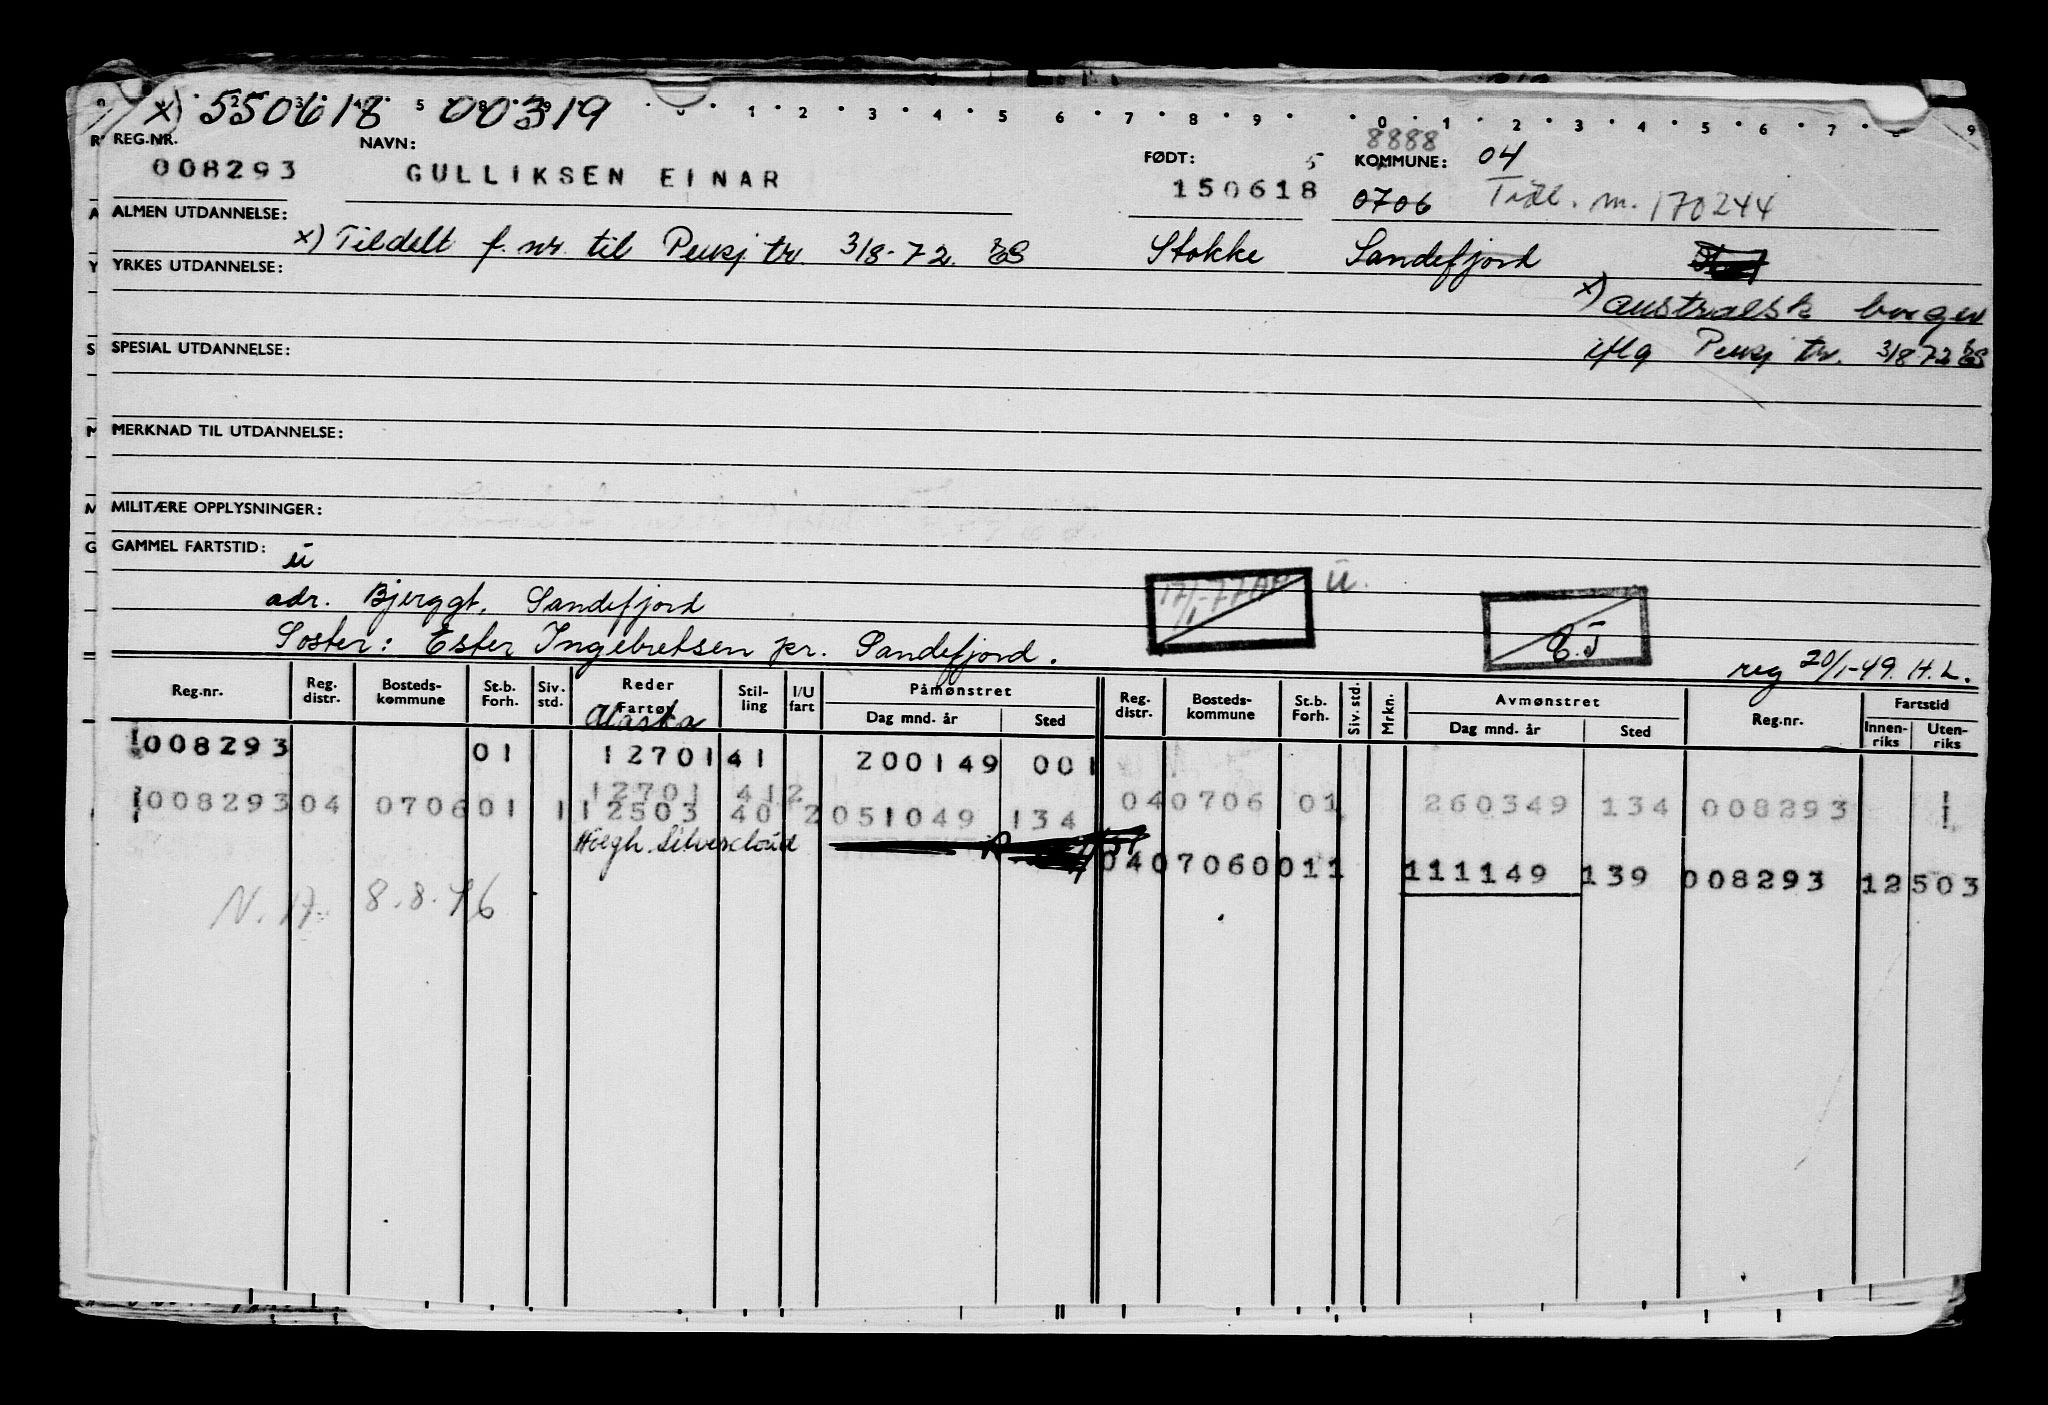 x) 550618 00319
1 2 3 4 5 6 7 8 9 0 1 2 3 4 5 6 7 8 9
REG.NR. NAVN: FØDT: 5 8888 KOMMUNE: 04
008293 GULLIKSEN EINAR 150618 0706 Tidl. m. 170244
ALMEN UTDANNELSE:
x) Tildelt f. nr. til Pensj tr. 3/8-72. Stokke Sandefjord
YRKES UTDANNELSE:
x) australsk borger
SPESIAL UTDANNELSE: iflg Pensj tr. 3/8 72
MERKNAD TIL UTDANNELSE:
MILITÆRE OPPLYSNINGER:
GAMMEL FARTSTID: ü
17/1-77 ü.
adr. Bjerggt. Sandefjord
E.J
Søster: Ester Ingebretsen pr. Sandefjord.
reg 20/1-49. H.L.
Reg.nr. Reg. distr. Bosteds-kommune St.b. Forh. Siv. std. Reder Fartøy Stil-ling I/U fart Påmønstret Dag mnd. år Sted Reg. distr. Bosteds-kommune St.b. Forh. Siv. std. Mrkn. Avmønstret Dag mnd. år Sted Reg.nr. Fartstid Innen-riks Uten-riks
Alaska
008293 01 12701 41 200149 001
12701 41 2 04 0706 01 260349 134 008293
008293 04 0706 01 1 12503 40 2 051049 134
Höegh Silvercloud
04 0706 0011 111149 139 008293 12503
N. A. 8.8.46